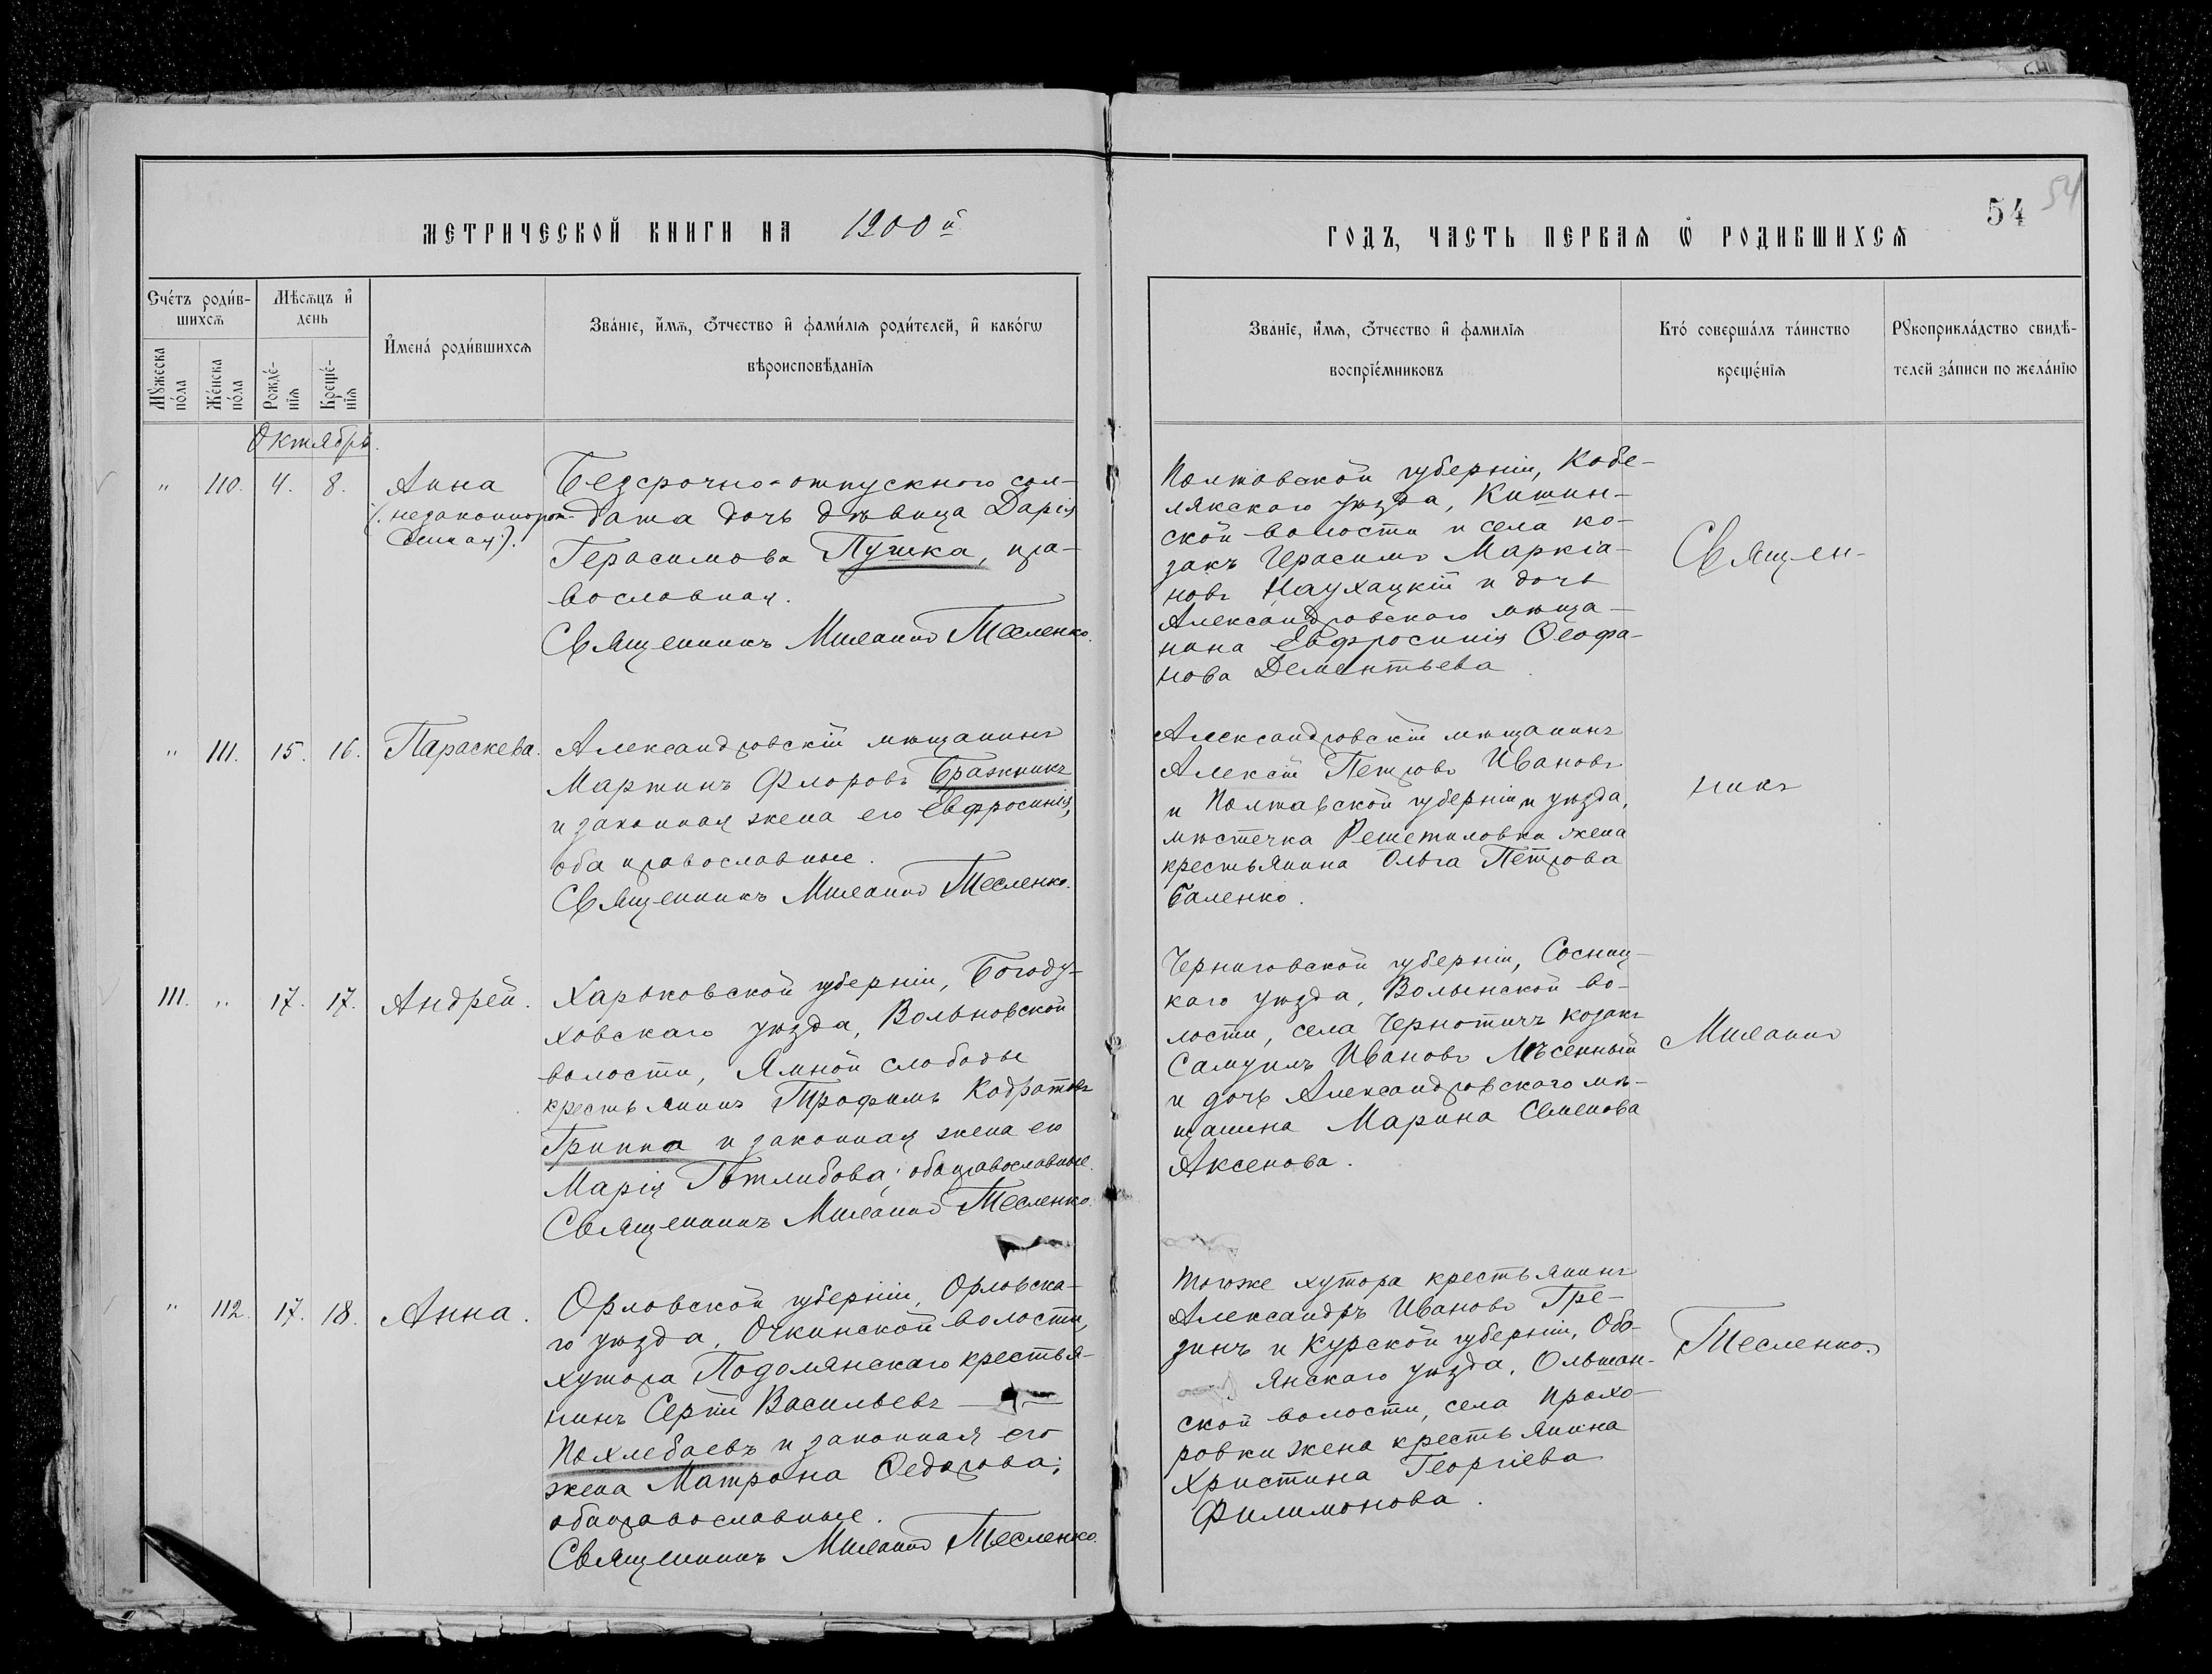 54
54
МЕТРИЧЕСКОЙ КНИГИ НА 1900й
ГОДЪ, ЧАСТЬ ПЕРВАЯ Ѿ РОДИВШИХСЯ
Счетъ родив-
шихся
Мужеска
пола
Женска
пола
Мѣсяцъ и
день
Рожде-
нія
Креще-
нія
Имена родившихся
Званіе, имя, отчество и фамилія родителей, и какогѡ
вѣроисповѣданія
Званіе, имя, отчество и фамилія
воспріемниковъ
Кто совершалъ таинство
крещенія
Рукоприкладство свидѣ-
телей записи по желанію
Октябрь.
" 110. 4. 8.
Анна
(незаконнорож-
денная).
Безсрочно-отпускного сол-
дата дочь дѣвица Дарія
Герасимова Пушка, пра-
вославная.
Священникъ Тесленко.
Полтавской губерніи, Кобе-
лякскаго уѣзда, Кишин-
ской волости и села ко-
закъ Герасимъ Маркіа-
новъ и дочь
Александровскаго мѣща-
нина Евфросинія Ѳеофа-
нова Дементьева.
" 111. 15. 16.
Параскева.
Александровскій мѣщанинъ
Мартинъ Флоровъ Бражникъ
и законная жена его Евфросинія,
оба православные.
Священникъ Тесленко.
Александровскій мѣщанинъ
Алексѣй Петровъ Ивановъ
и Полтавской губерніи и уѣзда,
мѣстечка Решетиловки жена
крестьянина Ольга Петрова
Баленко.
111. " 17. 17.
Андрей.
Харьковской губерніи, Богоду-
ховскаго уѣзда, Вольновской
волости, Ямной слободы
крестьянинъ Трофимъ Кодратовъ
Гриппа и законная жена его
Марія Готлибова; оба православные.
Священникъ Тесленко.
Черниговской губерніи, Сосниц-
каго уѣзда, Волынской во-
лости, села Чернотичъ козакъ
Самуилъ Ивановъ
и дочь Александровскаго мѣ-
щанина Марина Семенова
Аксенова.
" 112. 17. 18.
Анна.
Орловской губерніи, Орловска-
го уѣзда, Очкинской волости,
хутора Подолянскаго крестья-
нинъ Сергѣй Васильевъ
Похлебаевъ и законная его
жена Матрона Ѳедорова;
оба православные.
Священникъ Тесленко.
Того же хутора крестьянинъ
Александръ Ивановъ Гре-
зинъ и Курской губерніи, Обо-
янскаго уѣзда, Ольшан-
ской волости, села Прохо-
ровки жена крестьянина
Христина Георгіева
Филимонова.
Священ-
никъ
Тесленко.